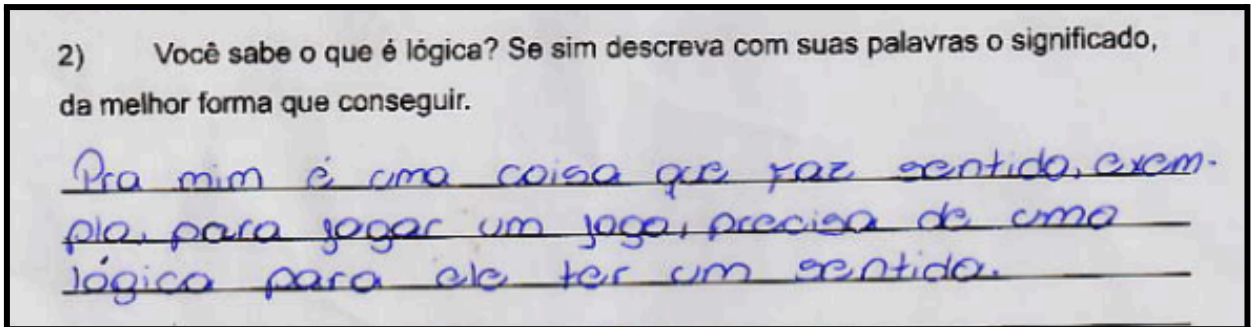 2) Você sabe o que é lógica? Se sim descreva com suas palavras o significado,
da melhor forma que conseguir.
Pra mim é uma coisa que faz sentido, exem-
plo, para jogar um jogo, precisa de uma
lógica para ele ter um sentido.